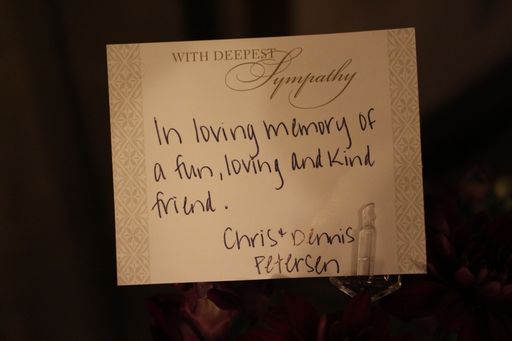 WITH DEEPEST
Sympathy
In loving memory of
a fun, loving and kind
friend.
Chris + Dennis
Petersen